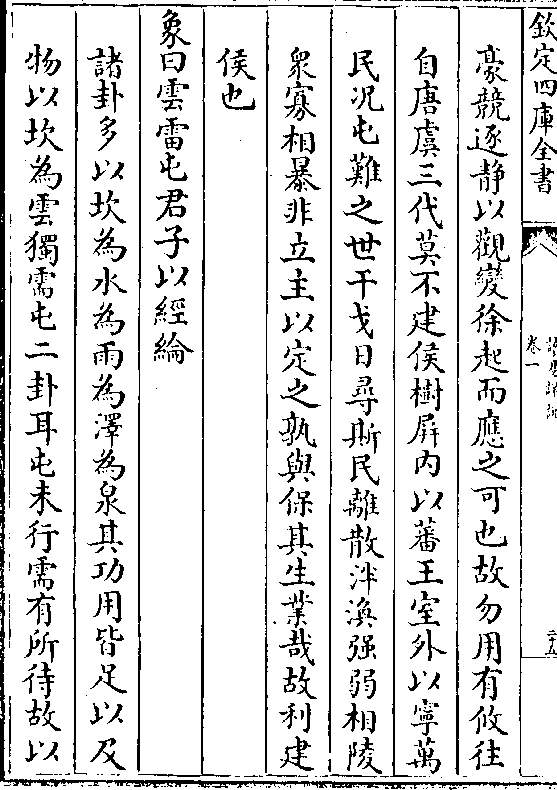 欽定四庫全書
卷一
二十五
豪競逐静以觀變徐起而應之可也故勿用有攸往
自唐虞三代莫不建侯樹屏内以蕃王室外以寧萬
民况屯難之世干戈日尋斯民離散泮渙强弱相陵
衆寡相暴非立主以定之孰與保其生業哉故利建
侯也
象曰雲雷屯君子以經綸
諸卦多以坎為水為雨為澤為泉其功用皆足以及
物以坎為雲獨需屯二卦耳屯未行需有所待故以